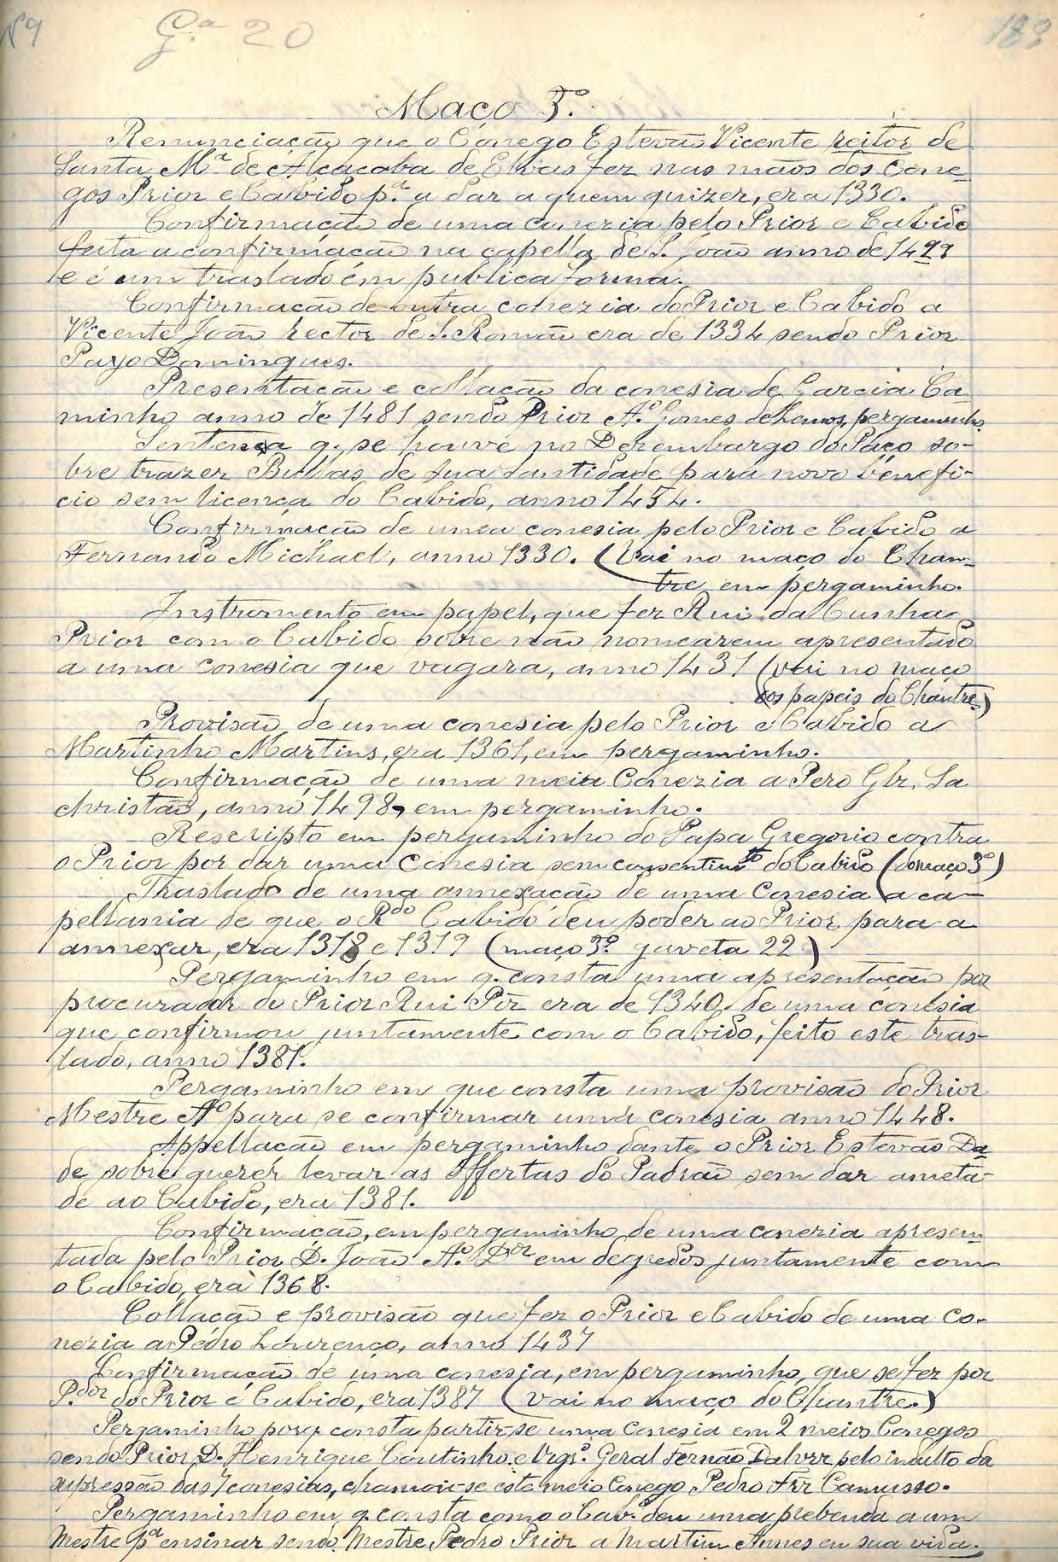 G.ª 20
183
Maço 3º.
Renunciação que o Conego Estevã Vicente reitor de
Santa M.ª de Alcaçoba de Elvas fez nas mãos dos Cone-
gos Prior e Cabido p.ª a dar a quem quizer, era 1330.
Confirmação de uma conezia pelo Prior e Cabido
feita a confirmação na capella de S. João anno de 1499
e é um traslado em publica forma.
Confirmação de outra conezia do Prior e Cabido a
Vicente João rector de S. Romão era de 1334 sendo Prior
Payo Domingues.
Presentação e collação da conesia de Garcia Ca-
minho anno de 1481 sendo Prior Aº Gomes de Lemos, pergaminho
Sentença q. se houve no Desembargo do Paço so-
bre trazer Bullas de Sua Santidade para novo benefi-
cio sem licença do Cabido, anno 1454.
Confirmação de uma conesia pelo Prior e Cabido a
Fernando Michael, anno 1330. (Vai no maço do Chan-
tre em pergaminho.
Instromento em papel, que fez Rui da Cunha
Prior com o Cabido sobre não nomearem apresentado
a uma conesia que vagara, anno 1431 (vai no maço
dos papeis do Chantre)
Provisão de uma conesia pelo Prior e Cabido a
Martinho Martins, era 1361, em pergaminho.
Confirmação de uma meia Conezia a Pero Glz. Sa
christão, anno 1498, em pergaminho.
Rescripto em pergaminho do Papa Gregorio contra
o Prior por dar uma conesia sem consentimto do Cabido (do maço 3º)
Traslado de uma annexação de uma Conesia a ca-
pellania de que o Rdo Cabido deu poder ao Prior para a
annexar, era 1318 e 1319 (maço 3º gaveta 22)
Pergaminho em q. consta uma apresentação por
procurador do Prior Rui Piz era de 1340, de uma conesia
que confirmou juntamente com o Cabido, feito este tras-
lado, anno 1381.
Pergaminho em que consta uma provisão do Prior
Mestre Aº para se confirmar uma conesia anno 1448.
Appellação em pergaminho dante o Prior Estevão Da-
de sobre querer levar as Offertas do Padrão sem dar ameta-
de ao Cabido, era 1381.
Confirmação, em pergaminho, de uma conezia apresen-
tada pelo Prior D. João Aº. Dor em degredos, juntamente com
o Cabido, era 1368.
Collação e provisão que fez o Prior e Cabido de uma Co-
nezia a Pedro Lourenço, anno 1437
Confirmação de uma conesia, em pergaminho, que se fez por
P.dor do Prior e Cabido, era 1387 (Vai no maço do Chantre.)
Pergaminho porq. consta partir-se uma Conesia em 2 meios Conegos
sendo Prior D. Henrique Coutinho, e Vrgº. Geral Fernão pelo indulto da
supressão das 7 conesias, chamou-se este meio Conego Pedro Frz Camisso.
Pergaminho em q. consta como o Cab.do deu uma prebenda a um
Mestre pª ensinar sendo Mestre Pedro Prior a Martim Annes em sua vida.